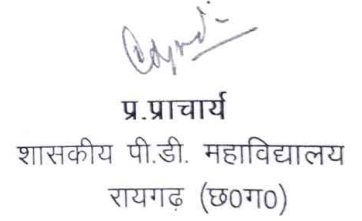 प्र.प्राचार्य
शासकीय पी.डी. महाविद्यालय
रायगढ़ (छ०ग०)